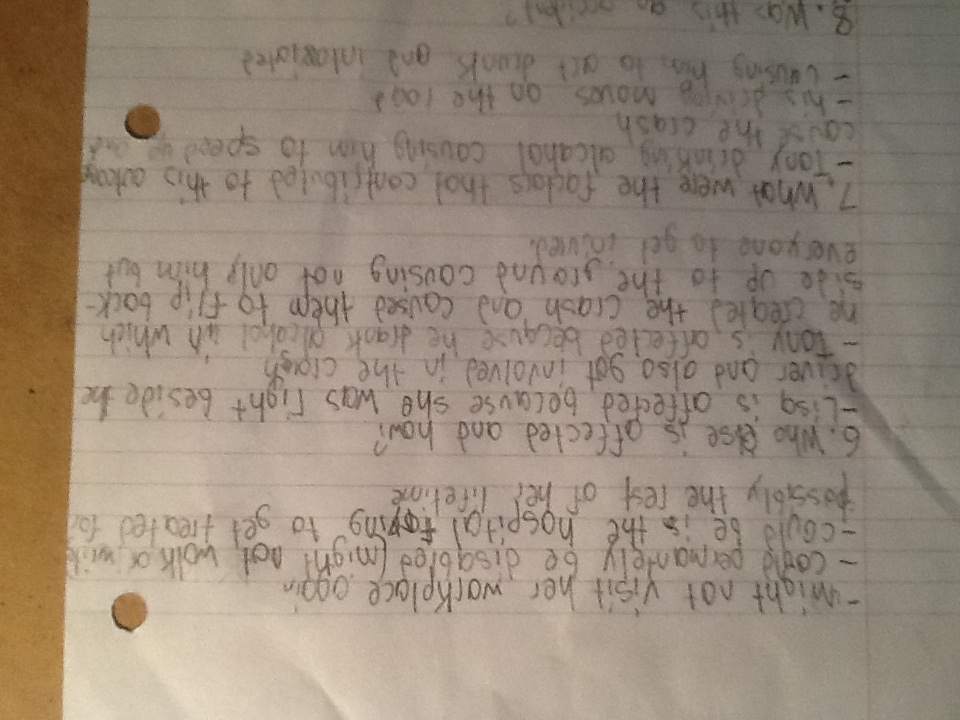 - might not visit her workplace again
- could permantely be disabled (might not walk or write
- could be in the hospital trying to get treated for
possibly the rest of her lifetime
6. Who else is affected and how?
- Lisa is affected because she was right beside the
driver and also got involved in the crash
- Tony is affected because he drank alcohol in which
he created the crash and caused them to flip back-
side up to the ground causing not only him but
everyone to get injured.
7. What were the factors that contributed to this outcome
- Tony drinking alcahol causing him to speed up and
cause the crash
- his driving moves on the road
- causing him to act drunk and intoxiated
8. Was this an accident?